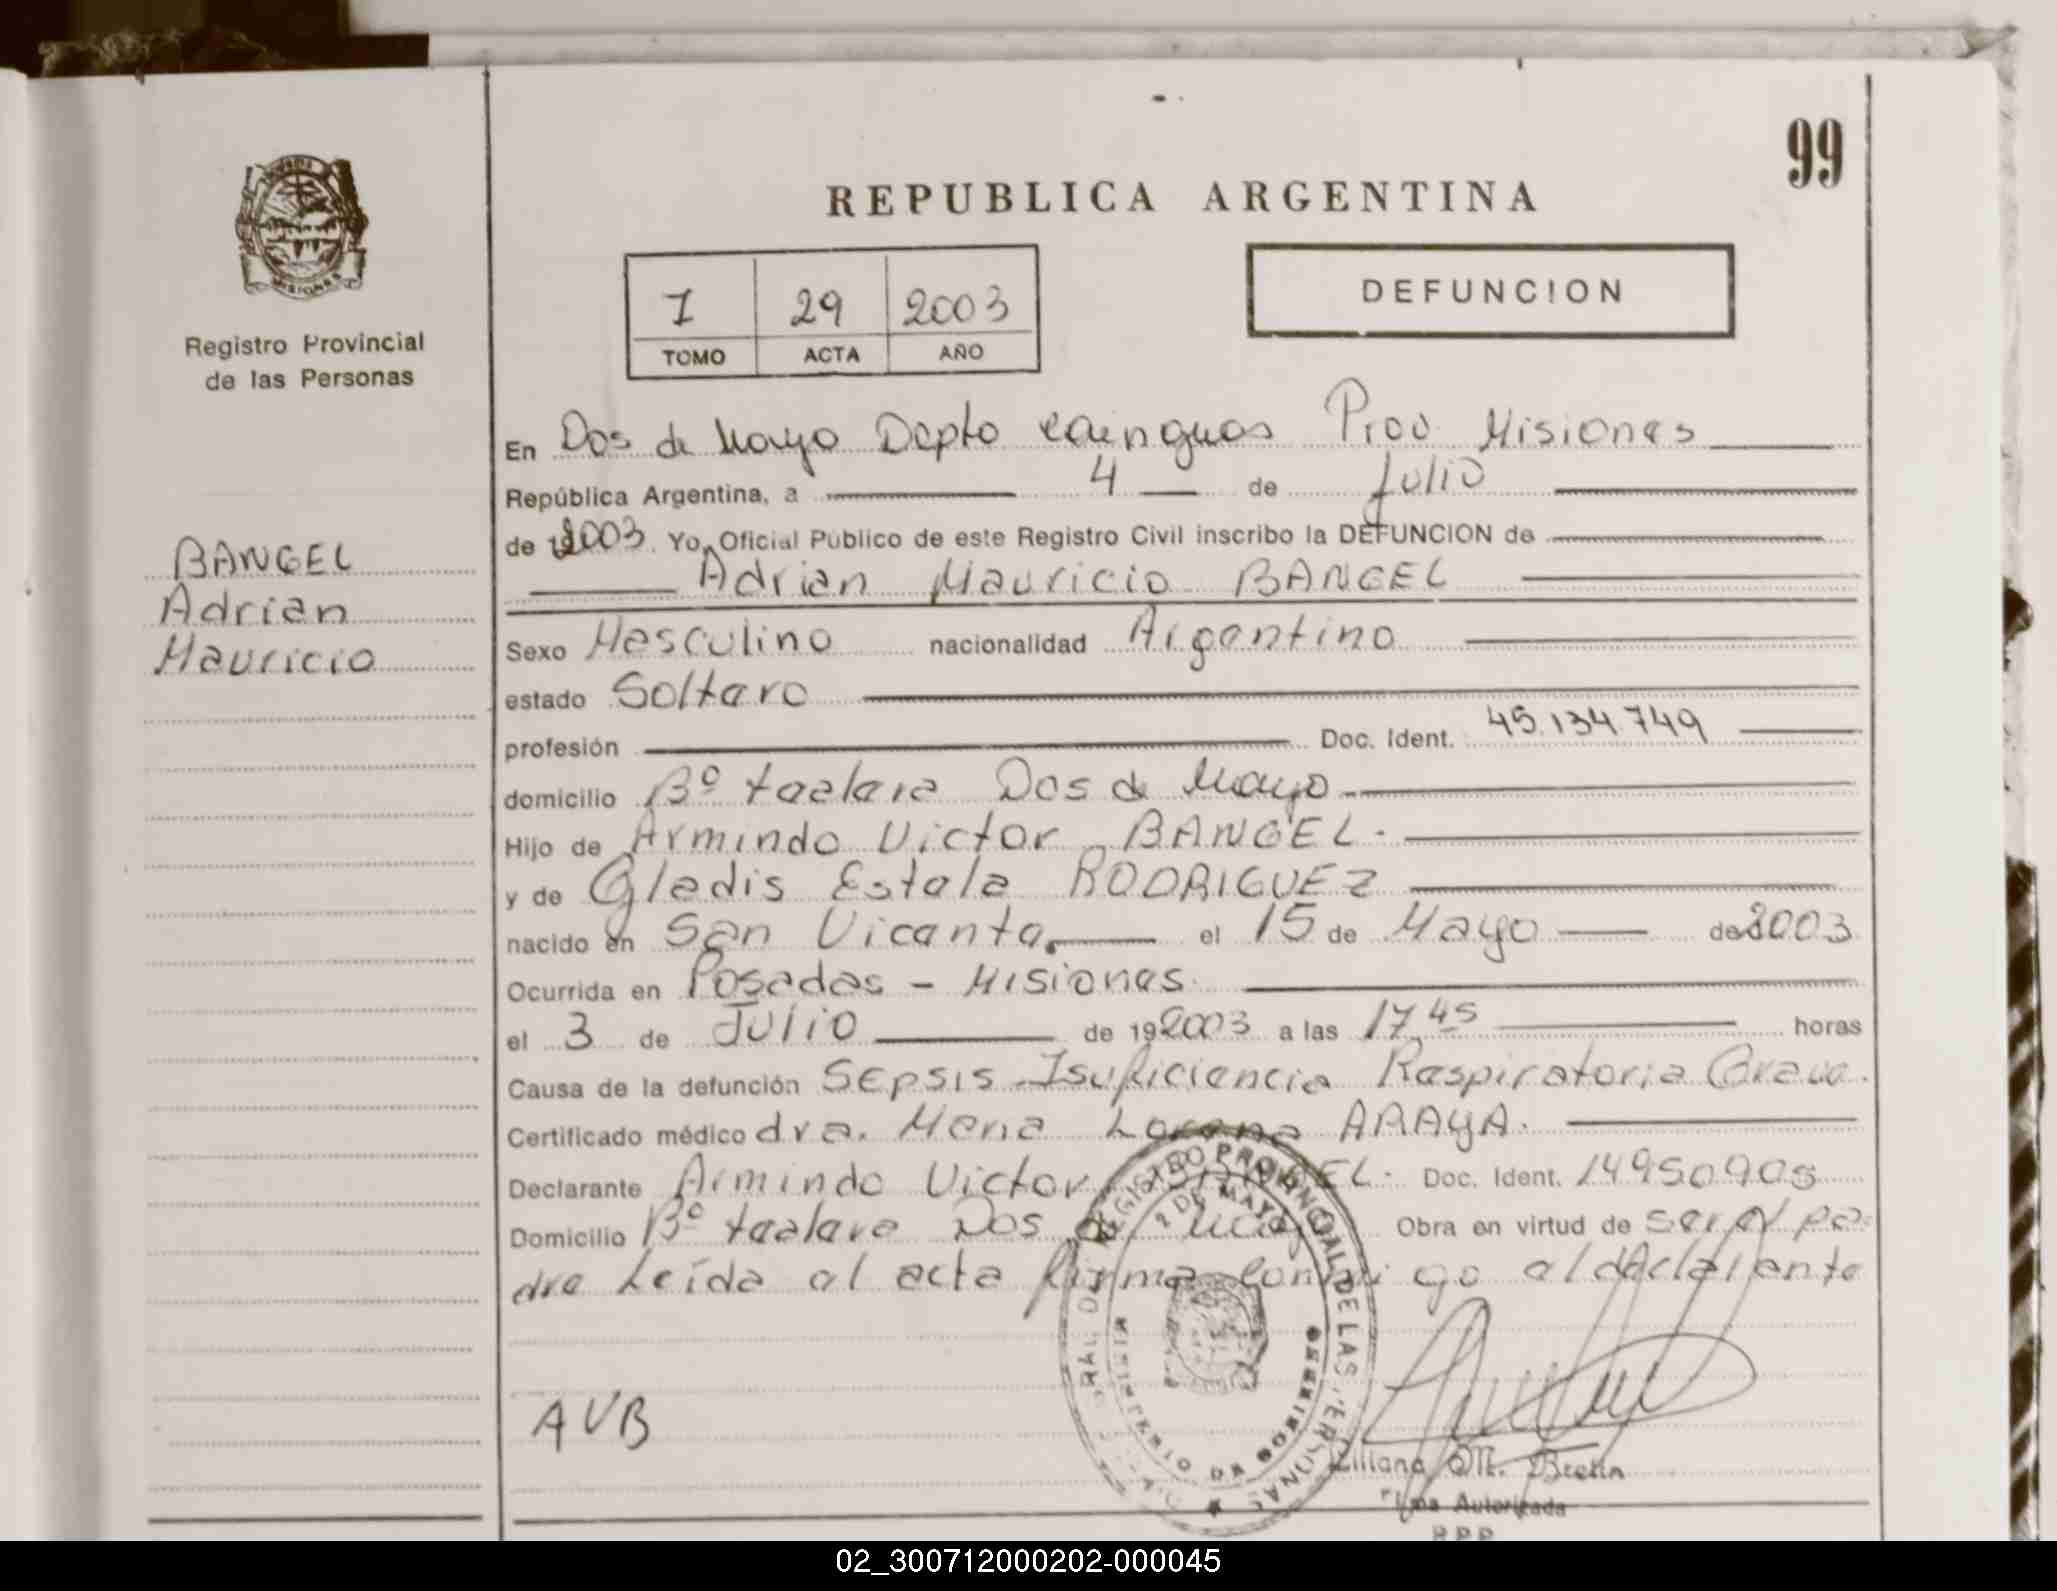 99
REPUBLICA ARGENTINA
MISIONES
Registro Provincial
de las Personas
I 29 2003
TOMO ACTA AÑO
DEFUNCION
BANGEL
Adrian
Mauricio
En Dos de Mayo Depto Cainguas Prov. Misiones
República Argentina, a 4 de Julio
de 2003. Yo, Oficial Público de este Registro Civil inscribo la DEFUNCION de
Adrian Mauricio BANGEL
Sexo Masculino nacionalidad Argentino
estado Soltero
profesión Doc. Ident. 45.134.749
domicilio Bº Dos de Mayo
Hijo de Armindo Victor BANGEL.
y de Gladis Estela RODRIGUEZ
nacido en San Vicente el 15 de Mayo de 2003
Ocurrida en Posadas - Misiones.
el 3 de Julio de 192003 a las 17,45 horas
Causa de la defunción Sepsis Isuficiencia Respiratoria Grave.
Certificado médico dra. Lorena ARAYA.
Declarante Armindo Victor BANGEL. Doc. Ident. 14950905
Domicilio Bº Dos de Mayo Obra en virtud de ser el pa=
dre Leída el acta firma conmigo el declarante
REGISTRO PROVINCIAL DE LAS PERSONAS
2 DE MAYO
MINISTERIO DE GOBIERNO
AVB
Liliana M.
Firma Autorizada
R.P.P.
02_300712000202-000045